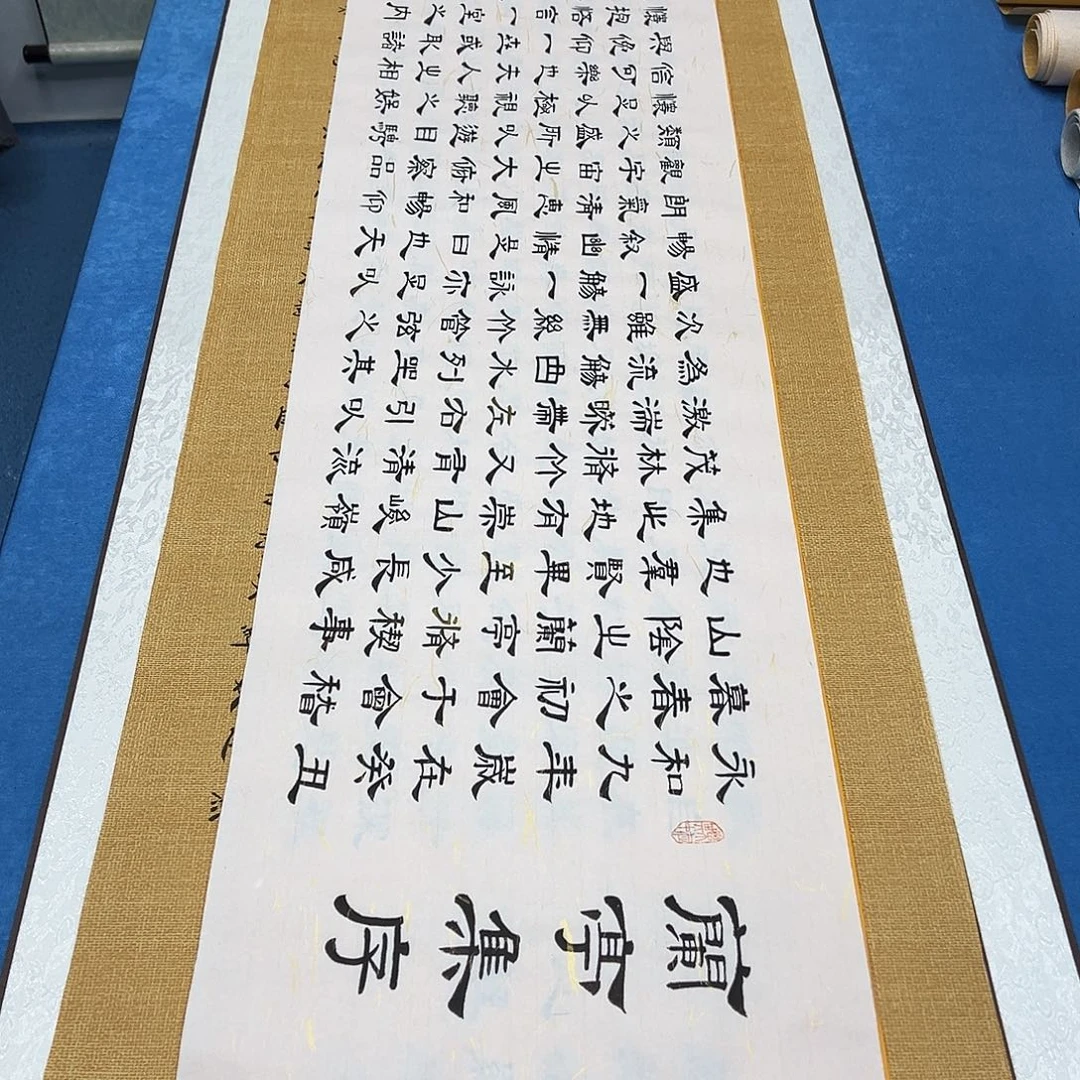 蘭亭集序
永和九年歲在癸丑
暮春之初會于會稽
山陰之蘭亭脩禊事
也羣賢畢至少長咸
集此地有崇山峻嶺
茂林脩竹又有清流
激湍暎帶左右引以
為流觴曲水列坐其
次雖無絲竹管弦之
盛一觴一詠亦足以
暢叙幽情是日也天
朗氣清惠風和暢仰
觀宇宙之大俯察品
類之盛所以遊目騁
懷足以極視聽之娛
信可樂也夫人之相
與俛仰一世或取諸
懷抱悟言一室之內